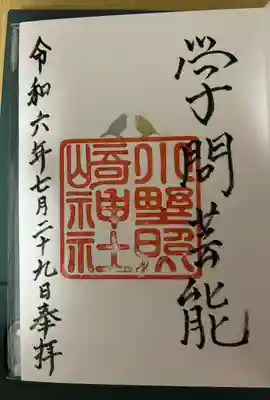 学問芸能
小野照
崎神社
令和六年七月二十九日奉拝